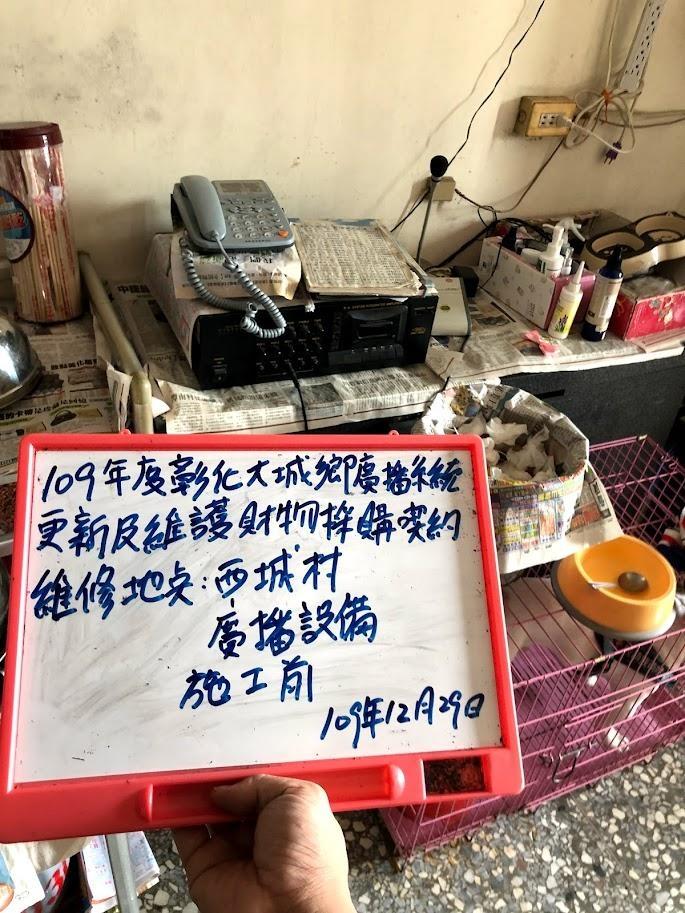 109年度彰化大城鄉廣播系統
更新及維護財物採購契約
維修地点:西城村
廣播設備
施工前
109年12月29日